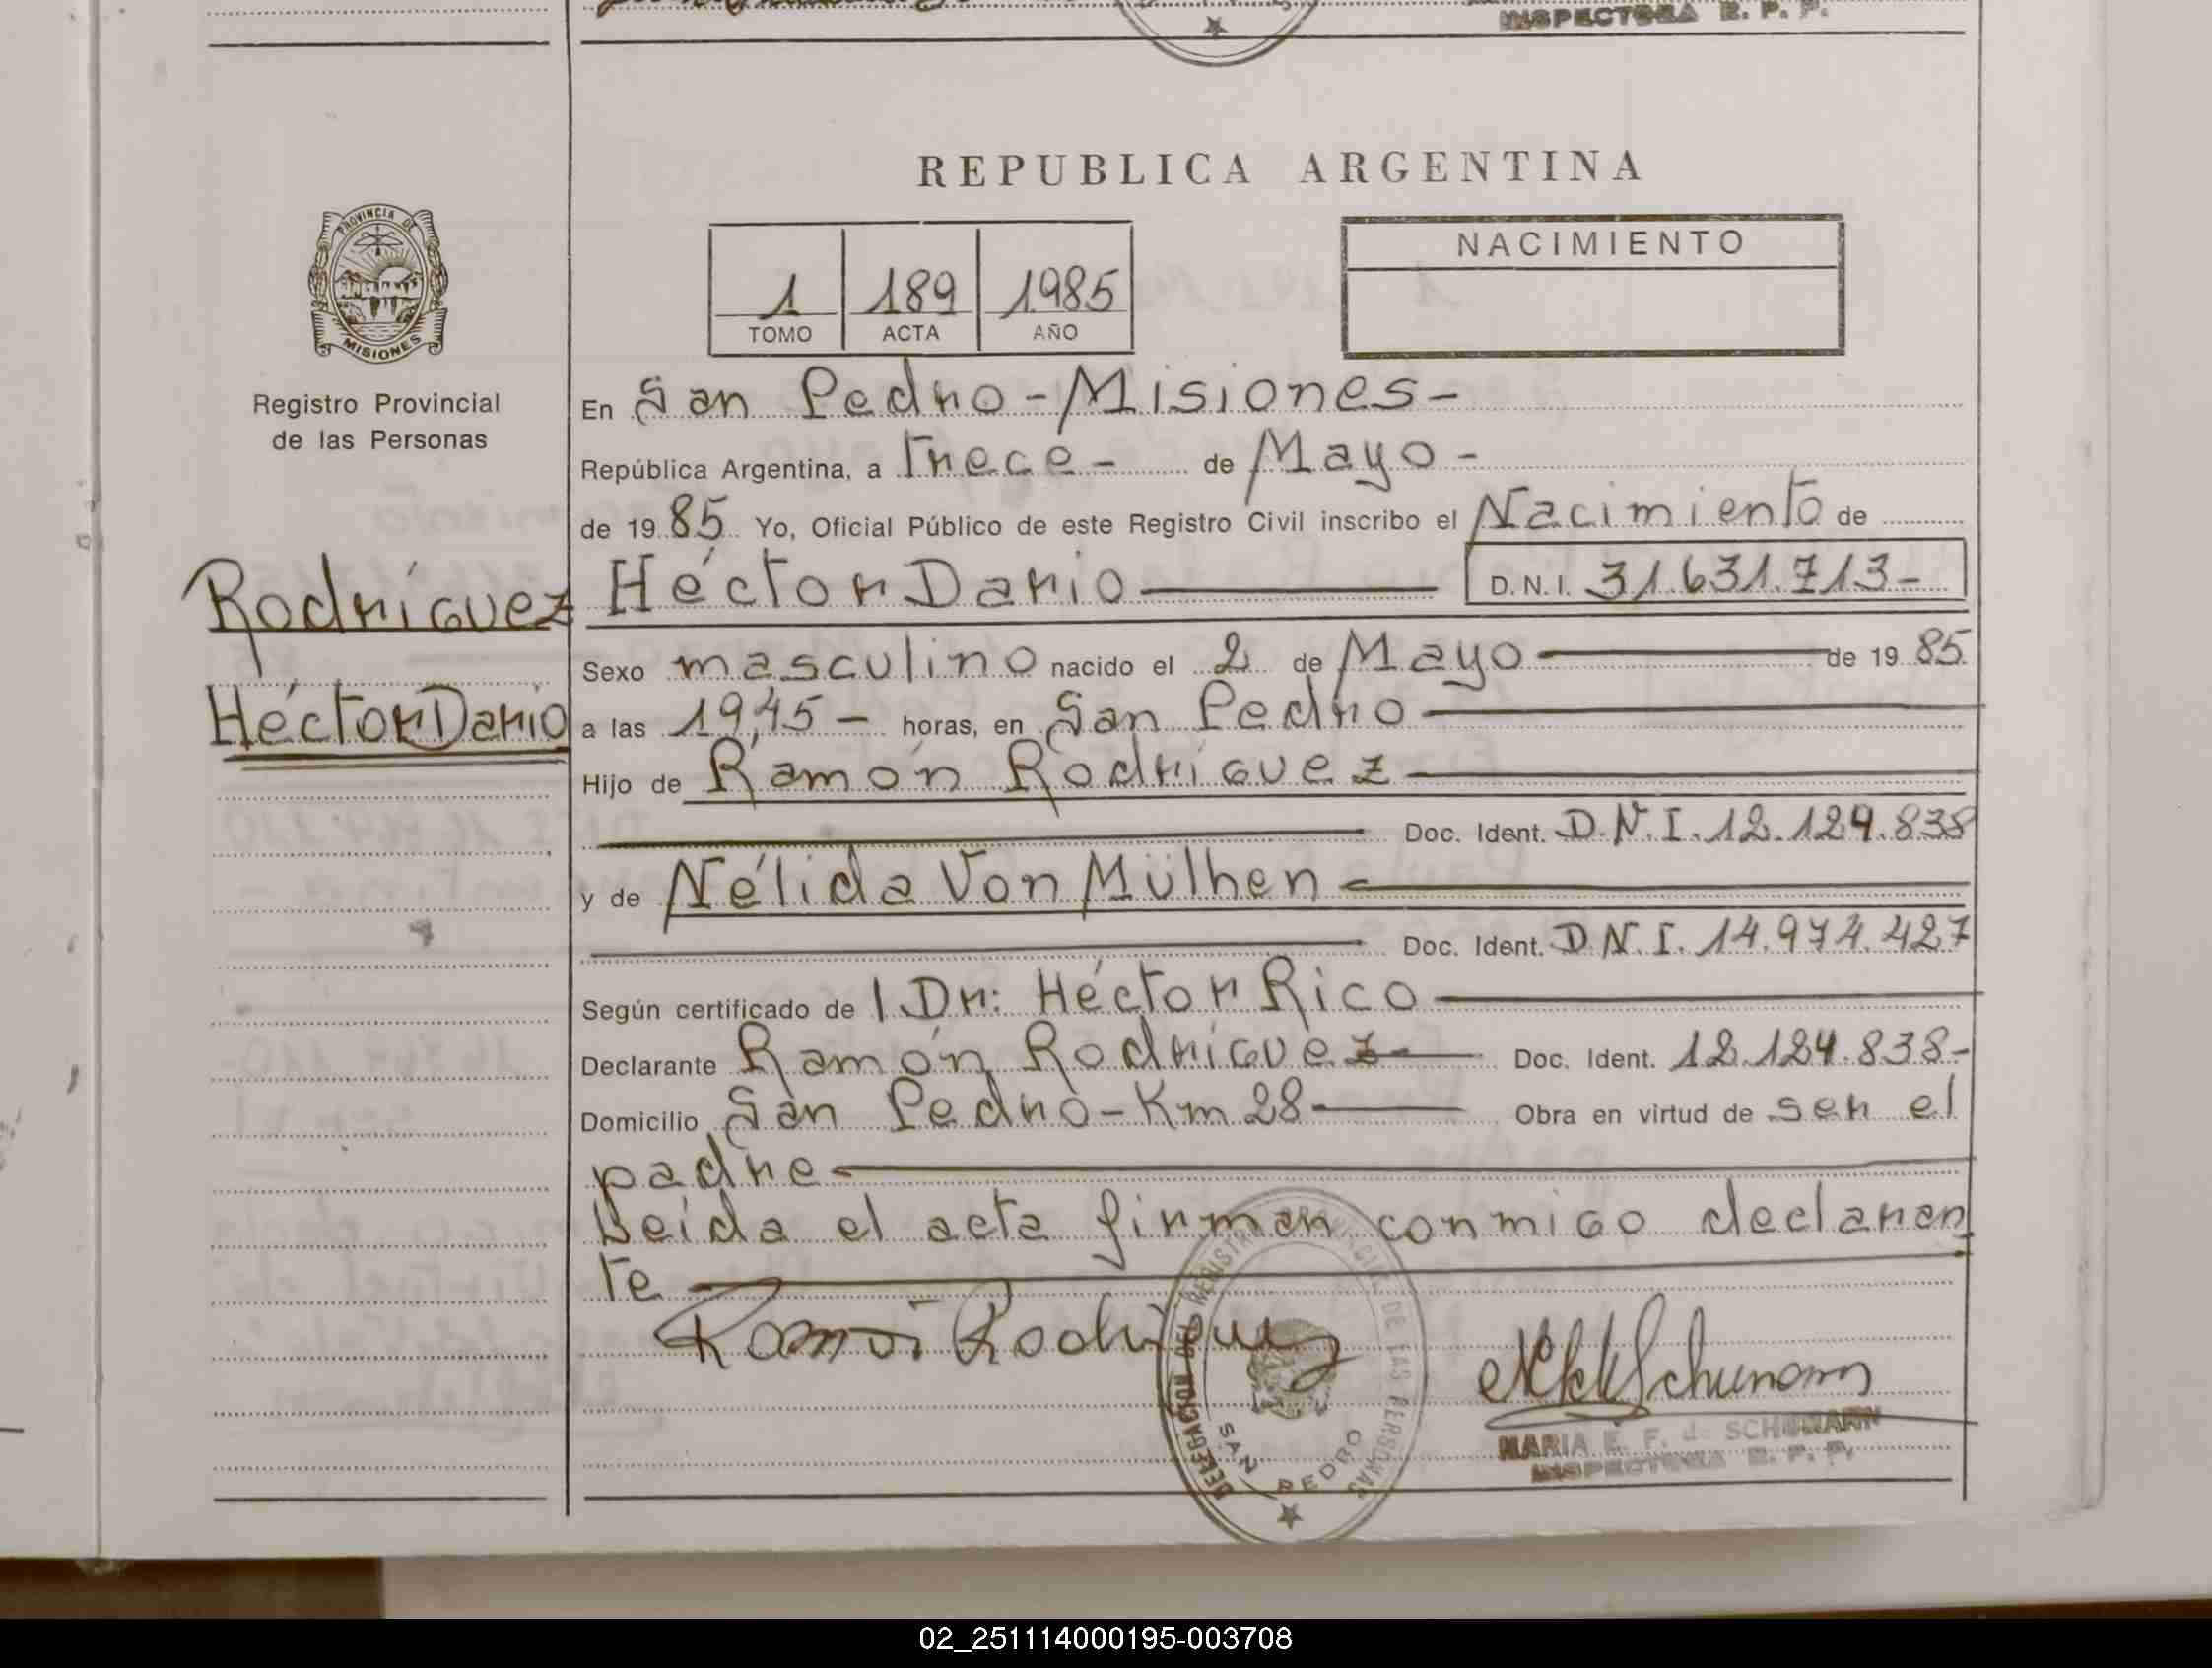 INSPECTORA R. P. P.
REPUBLICA ARGENTINA
PROVINCIA DE
MISIONES
Registro Provincial
de las Personas
1 189 1985
TOMO ACTA AÑO
NACIMIENTO
En San Pedro - Misiones -
República Argentina, a Trece - de Mayo -
de 19 85 Yo, Oficial Público de este Registro Civil inscribo el Nacimiento de
Rodríguez
Héctor Dario
Héctor Dario D.N.I. 31.631.713-
Sexo masculino nacido el 2 de Mayo de 19 85
a las 19,45 - horas, en San Pedro
Hijo de Ramón Rodríguez
Doc. Ident. D.N.I. 12.124.838
y de Nélida Von Mülhen
Doc. Ident. D.N.I. 14.974.427
Según certificado de / Dr: Héctor Rico
Declarante Ramón Rodríguez - Doc. Ident. 12.124.838-
Domicilio San Pedro - Km 28 Obra en virtud de ser el
padre
Leída el acta firman conmigo declaran
te
Ramón Rodriguez
Schumann
MARIA E. F. de SCHUMANN
INSPECTORA R. P. P.
DELEGACION DEL REGISTRO PROVINCIAL DE LAS PERSONAS
SAN PEDRO
02_251114000195-003708